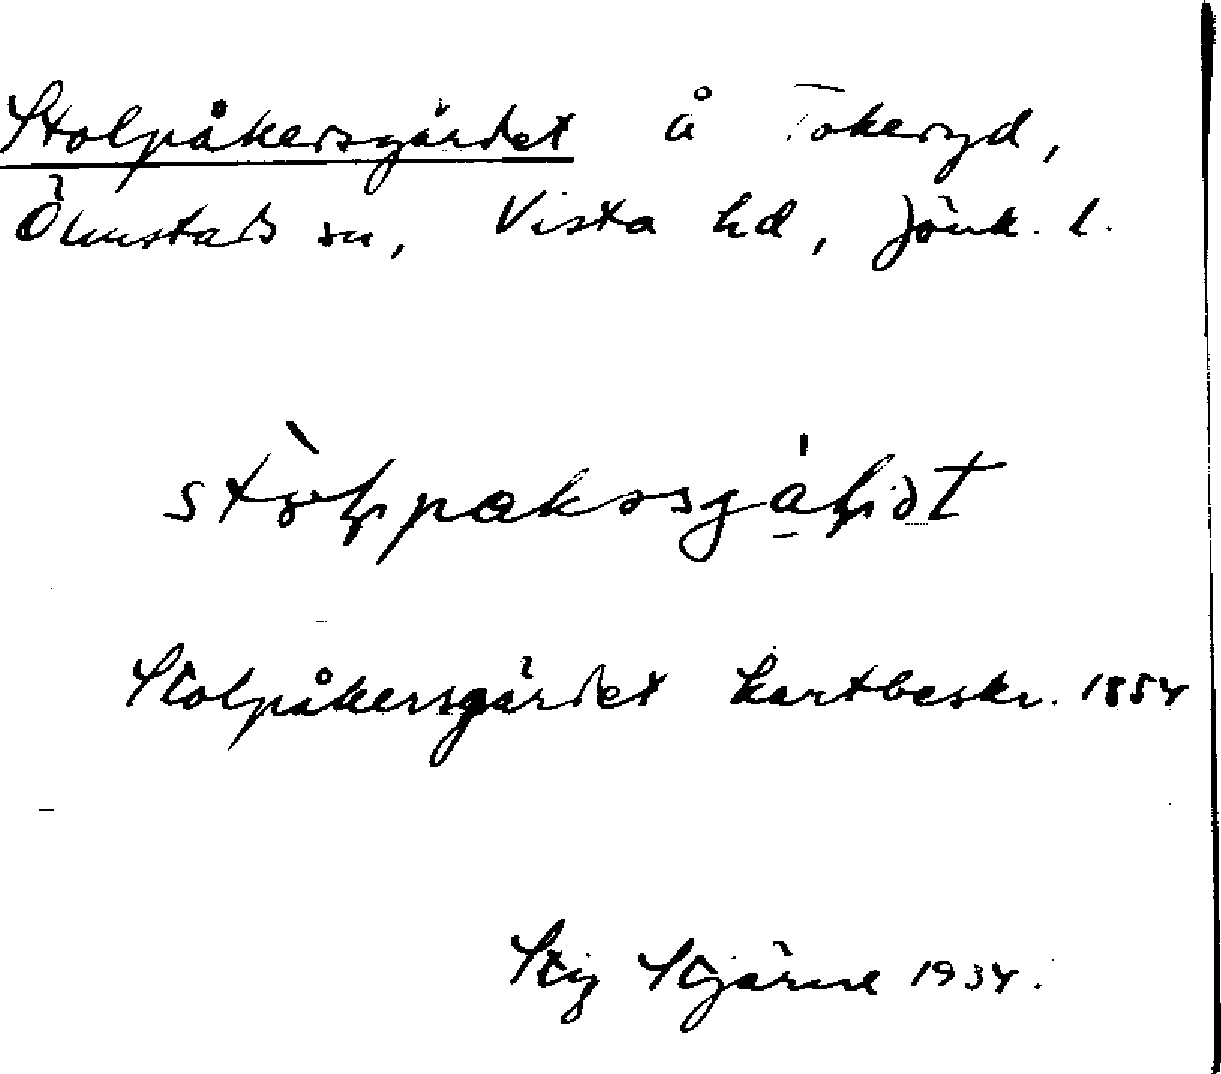 Stolpåkersgärdet å Tokeryd,
Ölmstads sn, Vista hd, Jönk. l.
Stolpåkersgärdet kartbeskr. 1854
Stig Stjärne 1934.